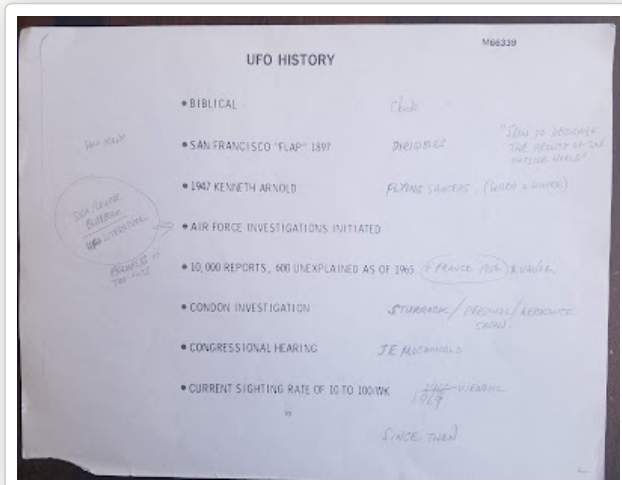 M66339
UFO HISTORY
• BIBLICAL
• SAN FRANCISCO "FLAP" 1897 DIRIGIBLES
"SLOW TO THE OF THE OUTSIDE WORLD"
• 1947 KENNETH ARNOLD FLYING SAUCERS
BLUEBOOK
UFO LITERATURE
• AIR FORCE INVESTIGATIONS INITIATED
EXAMPLES OF
• 10,000 REPORTS, 600 UNEXPLAINED AS OF 1965 + FRANCE & VALLEE
• CONDON INVESTIGATION STURROCK/ /AEROSPACE
• CONGRESSIONAL HEARING J E MCDONALD
• CURRENT SIGHTING RATE OF 10 TO 100/WK
1969
SINCE THEN